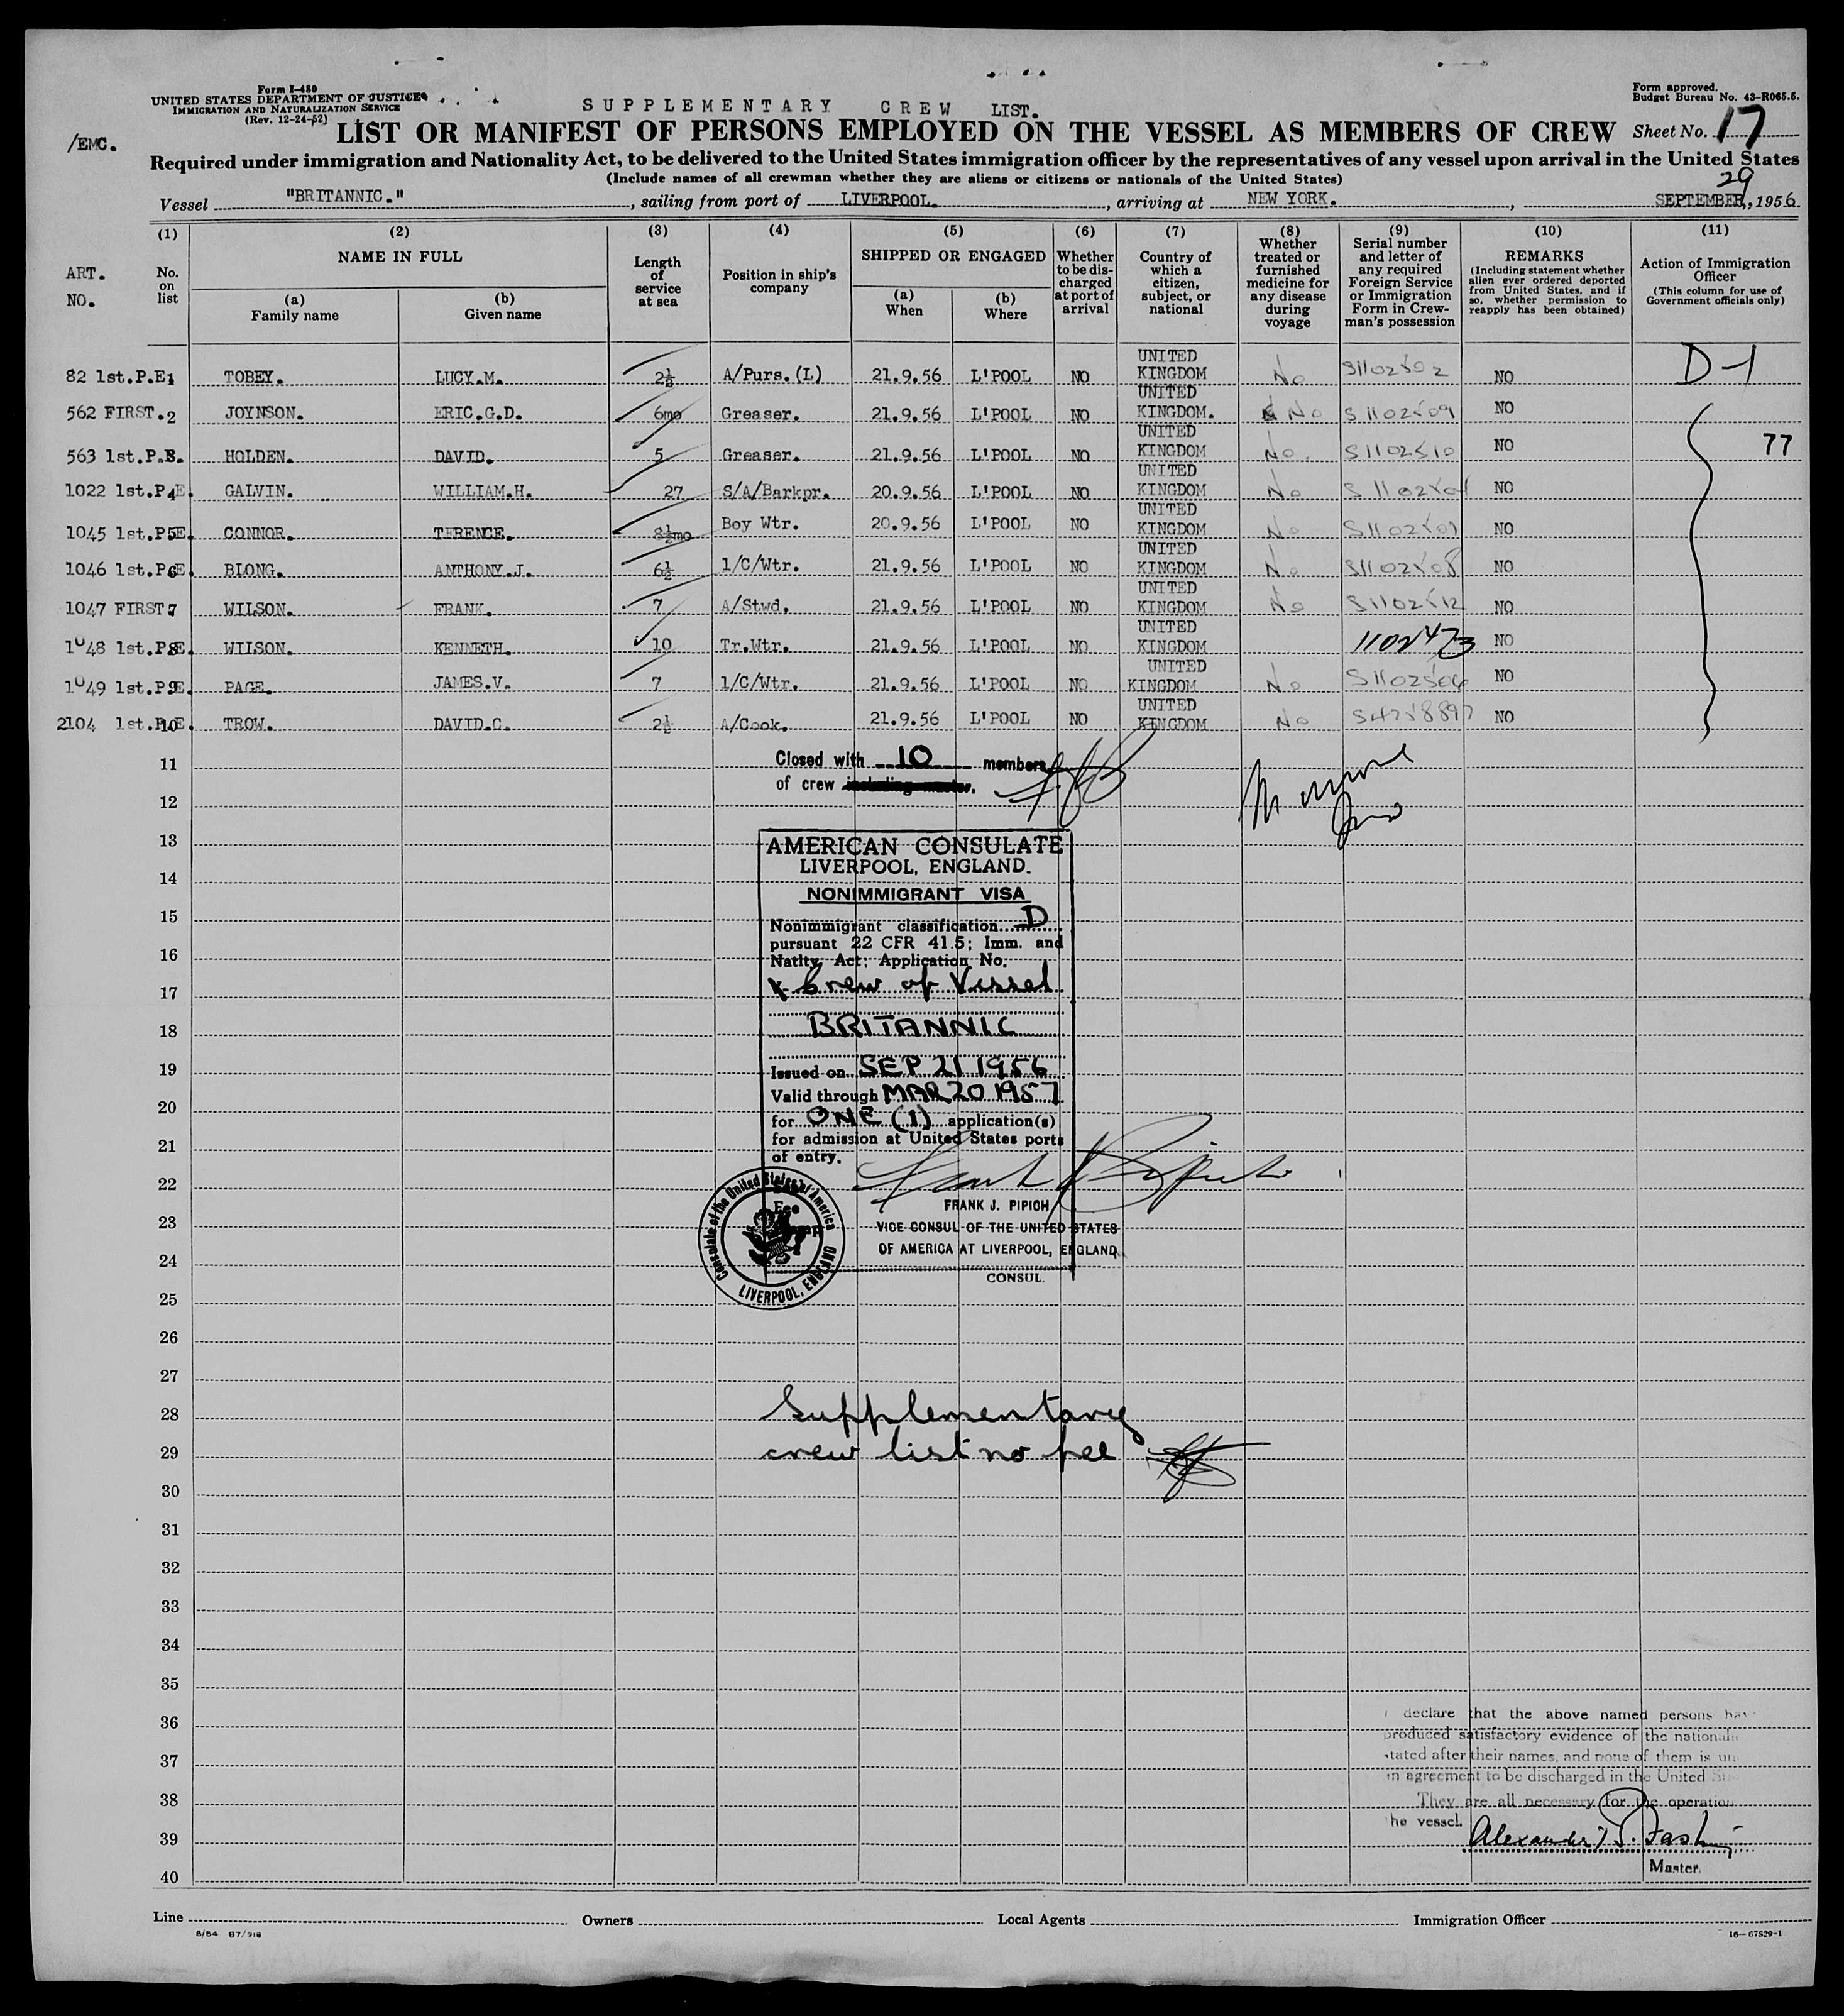 Form I-480
UNITED STATES DEPARTMENT OF JUSTICE
IMMIGRATION AND NATURALIZATION SERVICE
(Rev. 12-24-52)
SUPPLEMENTARY CREW LIST.
Form approved.
Budget Bureau No. 43-R065.5.
/EMC.
LIST OR MANIFEST OF PERSONS EMPLOYED ON THE VESSEL AS MEMBERS OF CREW
Sheet No. 17
Required under immigration and Nationality Act, to be delivered to the United States immigration officer by the representatives of any vessel upon arrival in the United States
(Include names of all crewman whether they are aliens or citizens or nationals of the United States)
Vessel "BRITANNIC." , sailing from port of LIVERPOOL. , arriving at NEW YORK. , SEPTEMBER 29, 1956
ART. NO.
(1) No. on list
(2) NAME IN FULL
(a) Family name
(b) Given name
(3) Length of service at sea
(4) Position in ship's company
(5) SHIPPED OR ENGAGED
(a) When
(b) Where
(6) Whether to be discharged at port of arrival
(7) Country of which a citizen, subject, or national
(8) Whether treated or furnished medicine for any disease during voyage
(9) Serial number and letter of any required Foreign Service or Immigration Form in Crewman's possession
(10) REMARKS
(Including statement whether alien ever ordered deported from United States, and if so, whether permission to reapply has been obtained)
(11) Action of Immigration Officer
(This column for use of Government officials only)
82 1st.P.E. 1 TOBEY. LUCY.M. 2½ A/Purs.(L) 21.9.56 L'POOL NO UNITED KINGDOM No S1102502 NO D-1
562 FIRST. 2 JOYNSON. ERIC.G.D. 6mo Greaser. 21.9.56 L'POOL NO UNITED KINGDOM. No S1102509 NO
563 1st.P.E. 3 HOLDEN. DAVID. 5 Greaser. 21.9.56 L'POOL NO UNITED KINGDOM No. S1102510 NO 77
1022 1st.P.E. 4 GALVIN. WILLIAM.H. 27 S/A/Barkpr. 20.9.56 L'POOL NO UNITED KINGDOM No NO
1045 1st.P.E. 5 CONNOR. TERENCE. 8½mo Boy Wtr. 20.9.56 L'POOL NO UNITED KINGDOM No NO
1046 1st.P.E. 6 BLONG. ANTHONY.J. 6½ 1/C/Wtr. 21.9.56 L'POOL NO UNITED KINGDOM No S1102508 NO
1047 FIRST. 7 WILSON. FRANK. 7 A/Stwd. 21.9.56 L'POOL NO UNITED KINGDOM No S1102512 NO
1048 1st.P.E. 8 WILSON. KENNETH. 10 Tr.Wtr. 21.9.56 L'POOL NO UNITED KINGDOM 1102473 NO
1049 1st.P.E. 9 PAGE. JAMES.V. 7 1/C/Wtr. 21.9.56 L'POOL NO UNITED KINGDOM No S1102506 NO
2104 1st.P.E. 10 TROW. DAVID.C. 2½ A/Cook. 21.9.56 L'POOL NO UNITED KINGDOM No S4758897 NO
11
Closed with 10 members
of crew including master.
12
13
AMERICAN CONSULATE
LIVERPOOL, ENGLAND.
14
NONIMMIGRANT VISA
15
Nonimmigrant classification D
pursuant 22 CFR 41.5; Imm. and
16
Natlty. Act; Application No.
Crew of Vessel
17
18
BRITANNIC
19
Issued on SEP 21 1956
Valid through MAR 20 1957
20
for ONE (1) application(s)
for admission at United States ports
21
of entry.
22
FRANK J. PIPICH
23
VICE CONSUL OF THE UNITED STATES
OF AMERICA AT LIVERPOOL, ENGLAND
24
CONSUL.
Fee
Consulate of the United States of America
LIVERPOOL, ENGLAND
25
26
27
28
Supplementary
29
crew list no fee
30
31
32
33
34
35
36
declare that the above named persons
produced satisfactory evidence of the
37
stated after their names, and none of them is
in agreement to be discharged in the United
38
They are all necessary for the operation
the vessel.
39
Alexander
Master.
40
Line
Owners
Local Agents
Immigration Officer
8/54 B7/918
16—67829-1